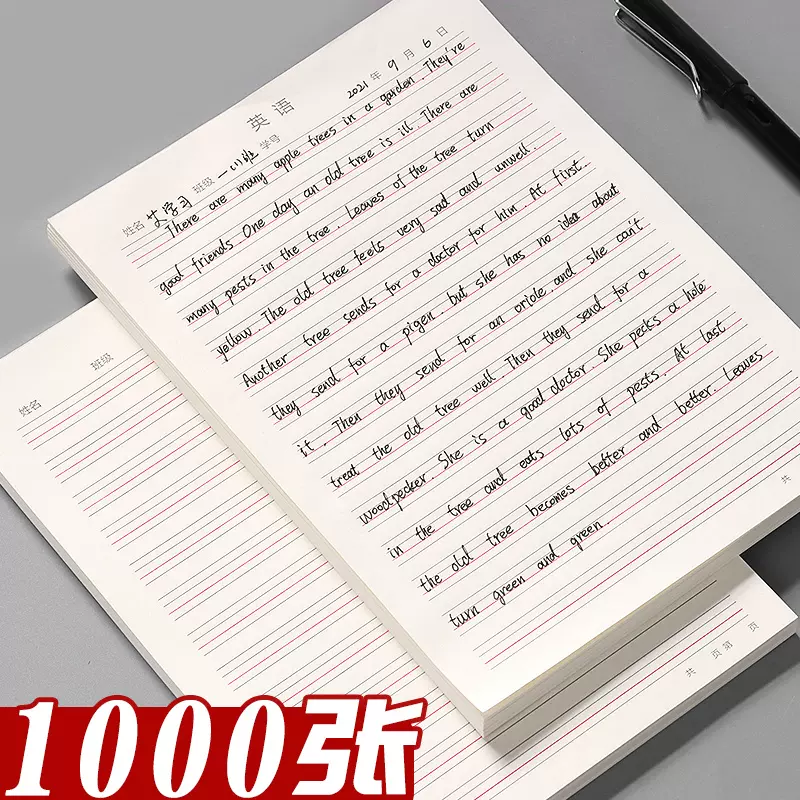 英语
2021 年 9 月 6 日
姓名 艾学习 班级 一(1)班 学号
There are many apple trees in a garden. They're
good friends. One day an old tree is ill. There are
many pests in the tree. Leaves of the tree turn
yellow. The old tree feels very sad and unwell.
Another tree sends for a doctor for him. At first,
they send for a pigen. but she has no idea about
it. Then they send for an oriole. and she can't
treat the old tree well. Then they send for a
woodpecker. She is a good doctor. She pecks a hole
in the tree and eats lots of pests. At last
the old tree becomes better and better. Leaves
turn green and green.
共
姓名 班级
共 页 第 页
1000张